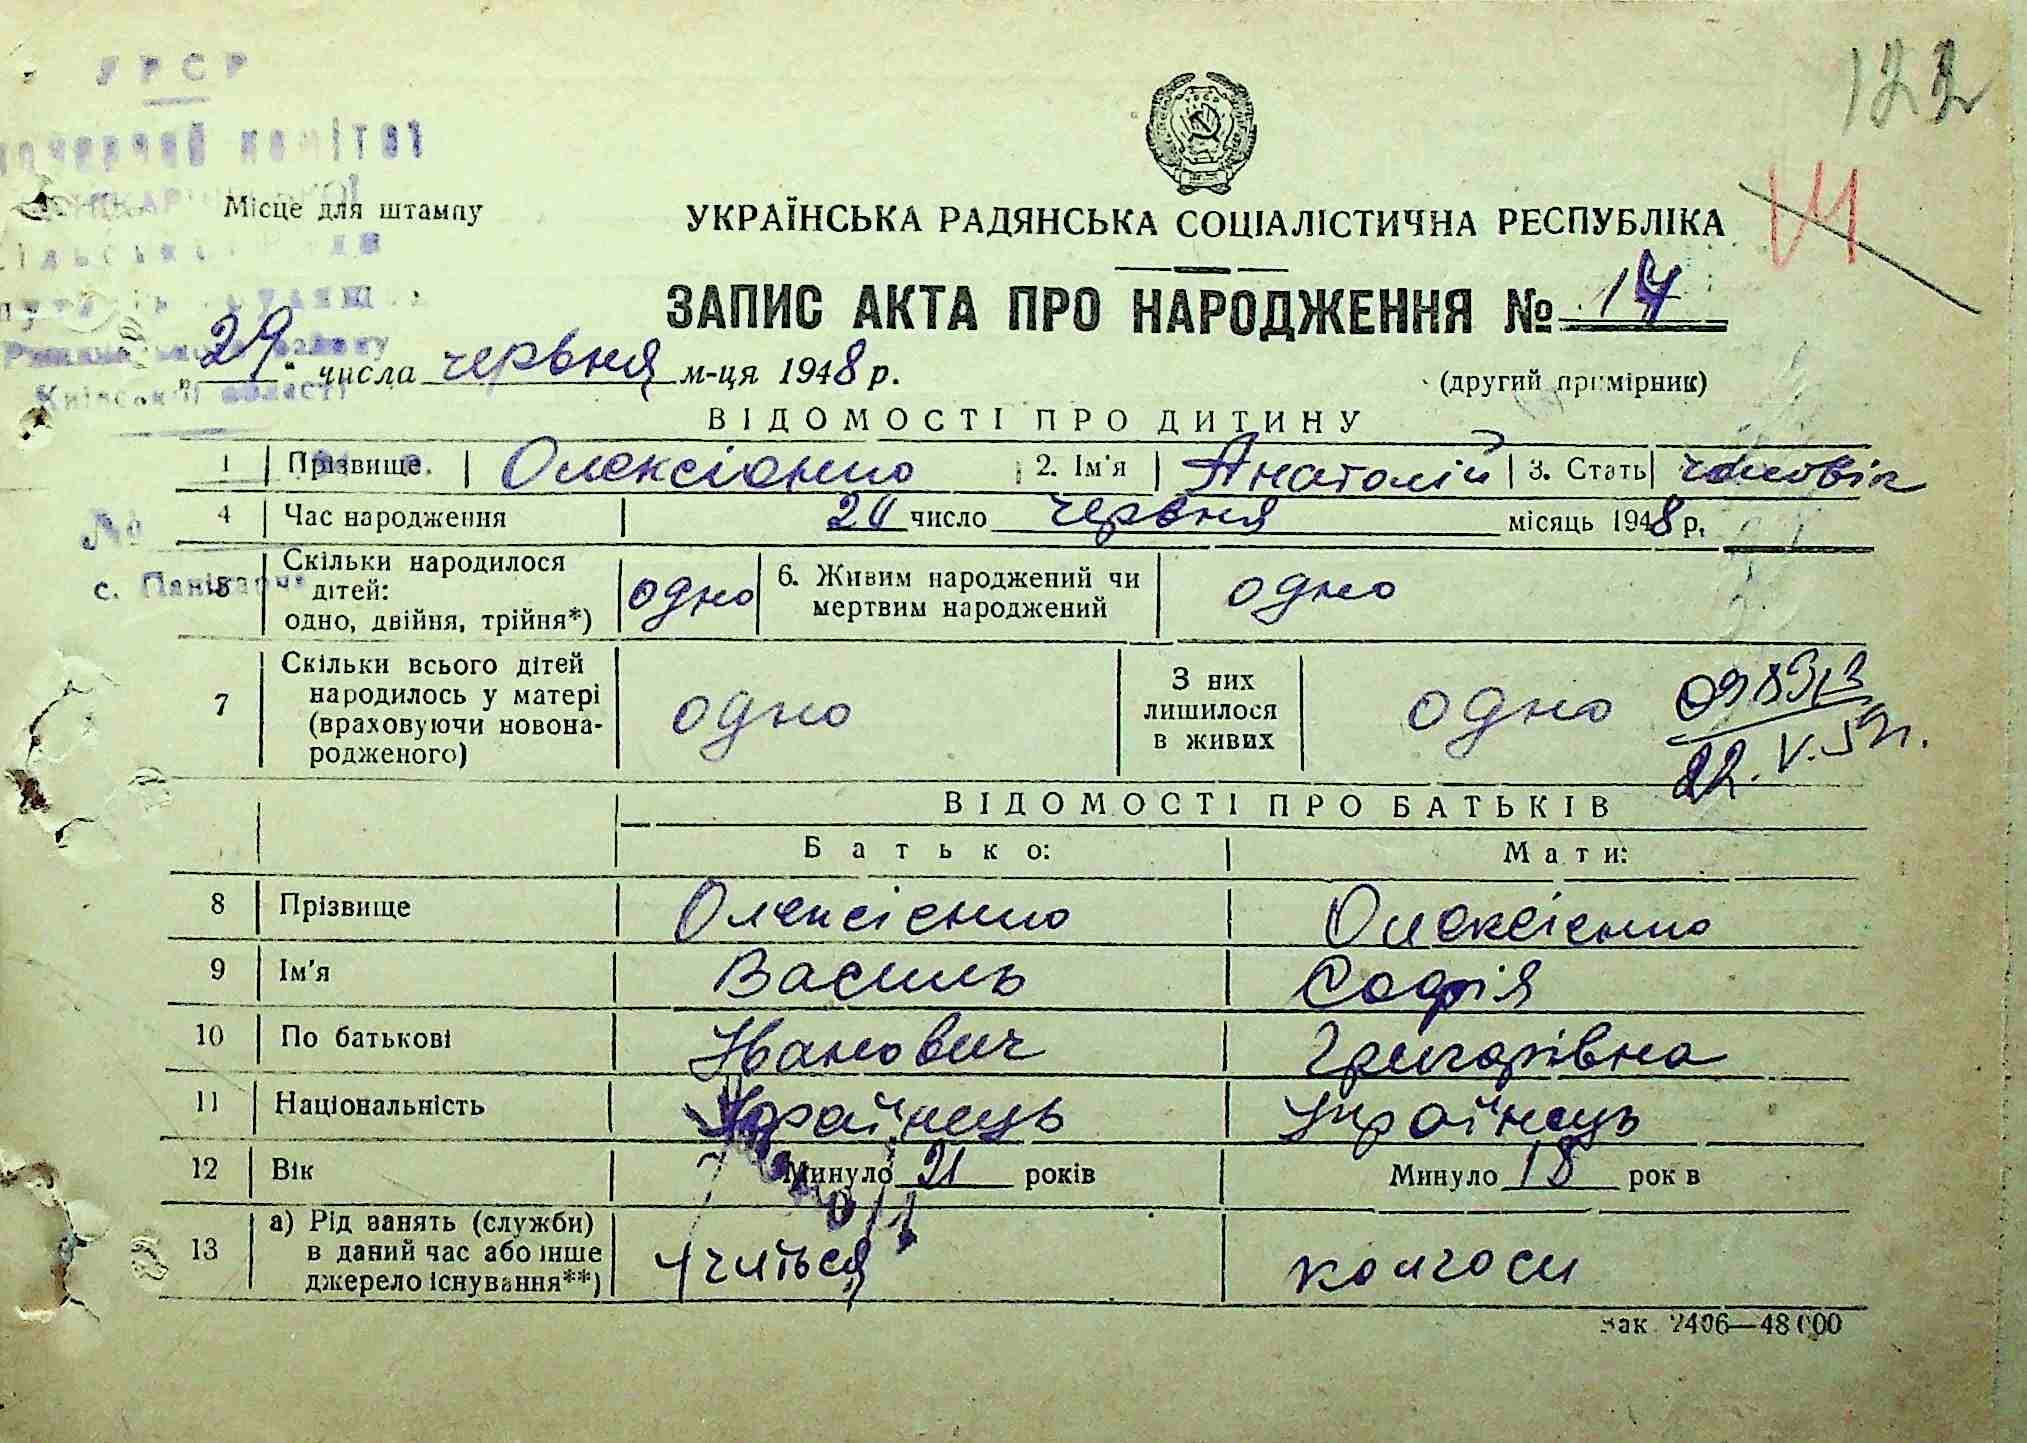 УРСР
комітет
Місце для штампу
Київської області
с. Панікарча
122
УКРАЇНСЬКА РАДЯНСЬКА СОЦІАЛІСТИЧНА РЕСПУБЛІКА
ЗАПИС АКТА ПРО НАРОДЖЕННЯ № 17
"29" числа червня м-ця 1948 р.
(другий примірник)
ВІДОМОСТІ ПРО ДИТИНУ
1 Прізвище Олексієнко 2. Ім'я Анатолій 3. Стать чоловік
4 Час народження число червня місяць 1948 р.
5 Скільки народилося дітей: одно, двійня, трійня*) одно 6. Живим народжений чи мертвим народжений одно
7 Скільки всього дітей народилось у матері (враховуючи новонародженого) одно З них лишилося в живих одно
22.V.
ВІДОМОСТІ ПРО БАТЬКІВ
Батько: Мати:
8 Прізвище Олексієнко Олексієнко
9 Ім'я Василь Софія
10 По батькові Иванович Григорівна
11 Національність Українець Українець
12 Вік Минуло 21 років Минуло 18 рок в
13 а) Рід занять (служби) в даний час або інше джерело існування**) учиться колгосп
Зак. 2406—48000